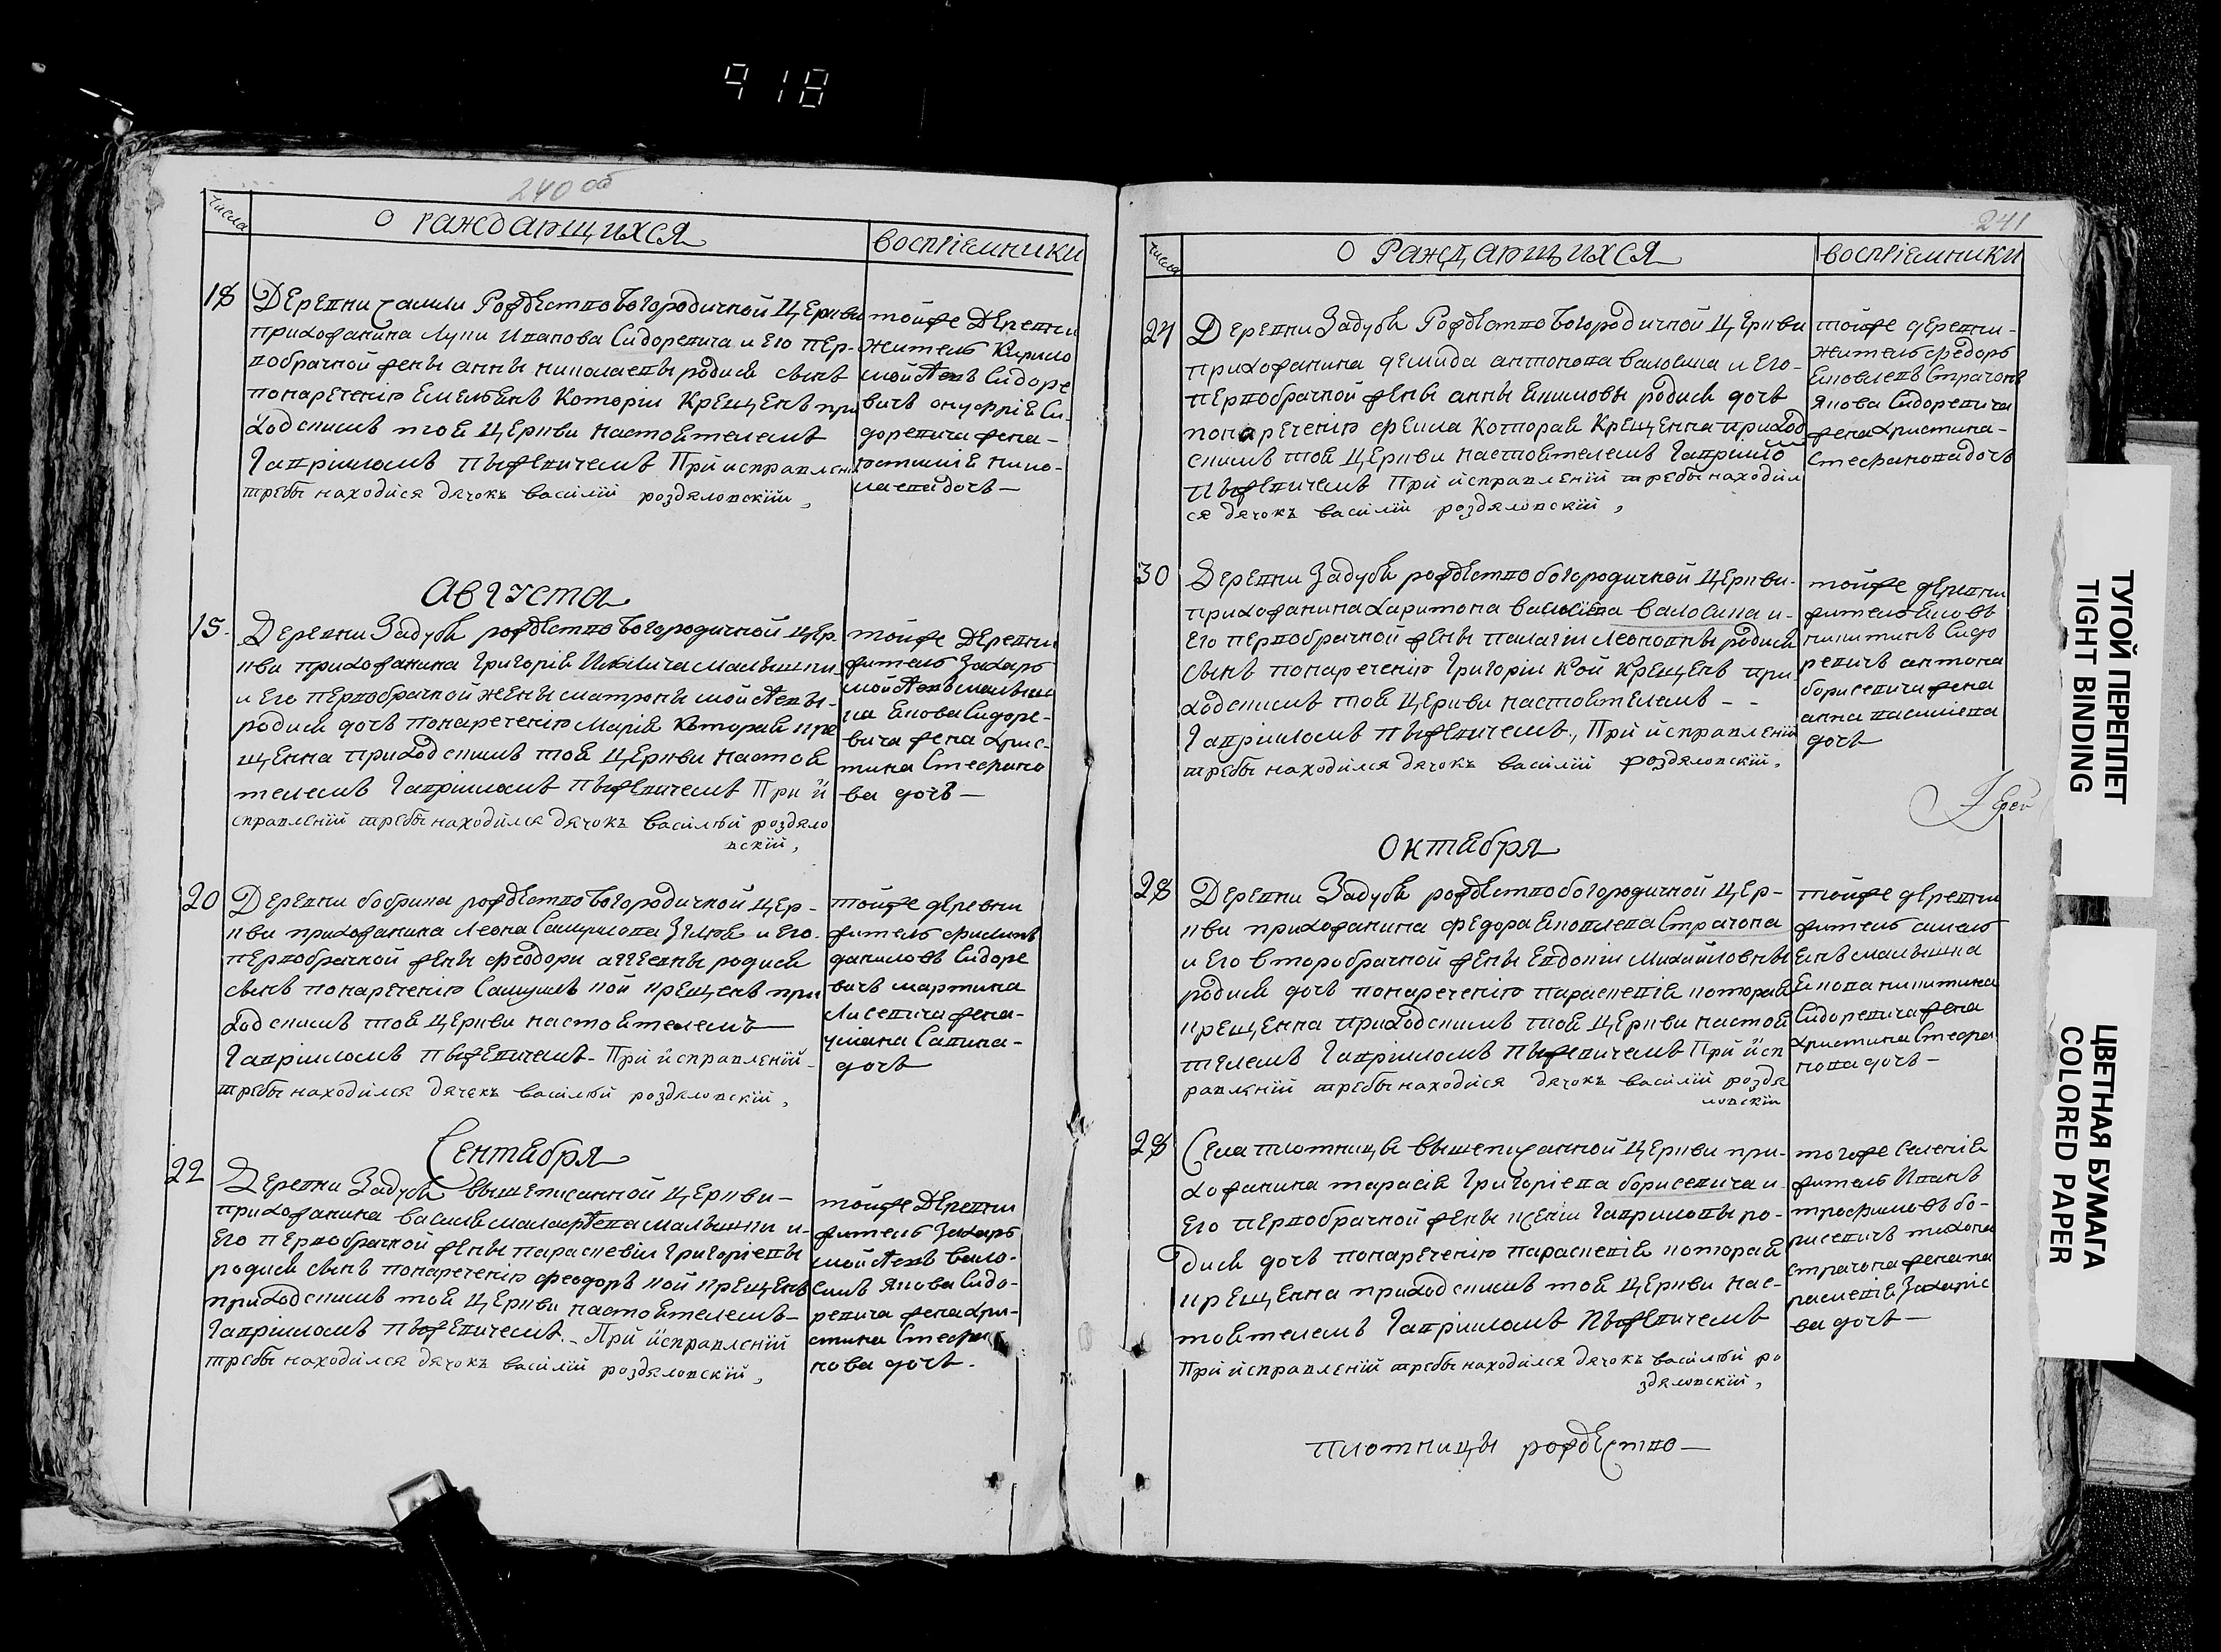 918
240 об
числа
О раждающихся
воспріемники
18
Деревни Рождество Богородичной Церкви
прихожанина Луки Иванова Сидоревича и Его пер-
вобрачной жены анны николаевы родися сынъ
понареченію Емельянъ Которіи Крещенъ при
ходскимъ тоя Церкви настоятелемъ
Гавріиломъ При исправлени
требы находился дячокъ василій роздяловскій,
тойже Деревни
житель Кирило
мойсѣевъ Сидоре
вичъ онуфрія Си-
доревича жена-
нико-
лаевадочь—
Августа
15.
Деревни Задубя рождество Богородичной цер-
кви прихожанина Григорія
и Его первобрачной жены матроны мойсѣевы-
родися дочь понареченію Марія Которая кре
щенна приходскимъ тоя Церкви настоя
телемъ Гавріиломъ При и
справленій требы находился дячокъ василій роздяло
вскій,
тойже Деревни
житель Захаръ
мойсѣевъ
на Якова Сидоре-
вича жена хрис-
тина Стефано
ва дочь—
20
Деревни бобрика рождество Богородичной Цер-
кви прихожанина Леона Самуилова и Его.
первобрачной жены феодори родися
сынъ понареченію Самуилъ кой крещенъ при
ходскимъ тоя Церкви настоятелемъ—
Гавріиломъ При исправленій
требы находился дячекъ василій роздяловскій,
тойже деревни
житель
даниловъ Сидоре
вичъ мартина
Лисевича жена-
уляна Савина-
дочь
Сентября
22
Деревни Задубя вышеписанной Церкви-
прихожанина василя и
Его первобрачной жены параскевіи Григоріевы
родися сынъ понареченію феодоръ кой крещенъ
приходскимъ тоя Церкви настоятелемъ-
Гавріиломъ При исправленій
требы находился дячокъ василій роздяловскій,
тойже Деревни
житель Захаръ
мойсѣевъ вало-
Якова Сидо-
ревича жена хри-
стина Стефа
нова дочь.
241
числа
О Раждающихся
воспріемники
Деревни Задубя Рождество Богородичной Церкви
прихожанина демида антонова валосина и Его-
первобрачной жены анны Якимовы родися дочь
понареченію Которая Крещенна приход
скимъ тоя Церкви настоятелемъ Гавриило
При исправленій требы находил
ся дячокъ василій роздяловскій,
тойже деревни-
житель федоръ
Яковлевъ Страчонъ
Якова Сидоревича
жена христина-
Стефановадочь
30
Деревни Задубя рождество богородичной Церкви-
прихожанина харитона валосина и-
Его первобрачной жены палагіи Леоновны родися
сынъ понареченію Григоріи Кой Крещенъ при
ходскимъ тоя Церкви настоятелемъ - -
Гавріиломъ При исправленій
требы находился дячокъ василій роздяловскій,
тойже деревни
житель яковъ
никитинъ Сидо
ревичъ антона
борисевича жена
анна василіева
дочь
Іерей
Октября
28
Деревни Задубя рождество богородичной Цер-
кви прихожанина федора Яковлева Страчона
и Его второбрачной жены Евдокіи Михайловны
родися дочь понареченію параскевія которая
крещенна приходскимъ тоя Церкви настоя
телемъ Гавріиломъ При исп
равленій требы находися дячокъ василій роздя
ловскій
тойже деревни
житель
Якова никитина
Сидоревича жена
христина Стефа
нова дочь—
28
Села плотницы вышеписанной Церкви при-
хожанина тарасія Григоріева борисевича и
Его первобрачной жены ксеніи Гавриловы ро-
дися дочь понареченію параскевія которая
крещенна приходскимъ тоя Церкви нас-
тоятелемъ Гавріиломъ
При исправленій требы находился дячокъ василій ро
здяловскій,
тогоже селенія
житель Иванъ
трофимовъ бо-
рисевичъ тихона
страчона жена па
раскевія Захаріе
ва дочь—
плотницы рождество—
ТУГОЙ ПЕРЕПЛЕТ
TIGHT BINDING
ЦВЕТНАЯ БУМАГА
COLORED PAPER